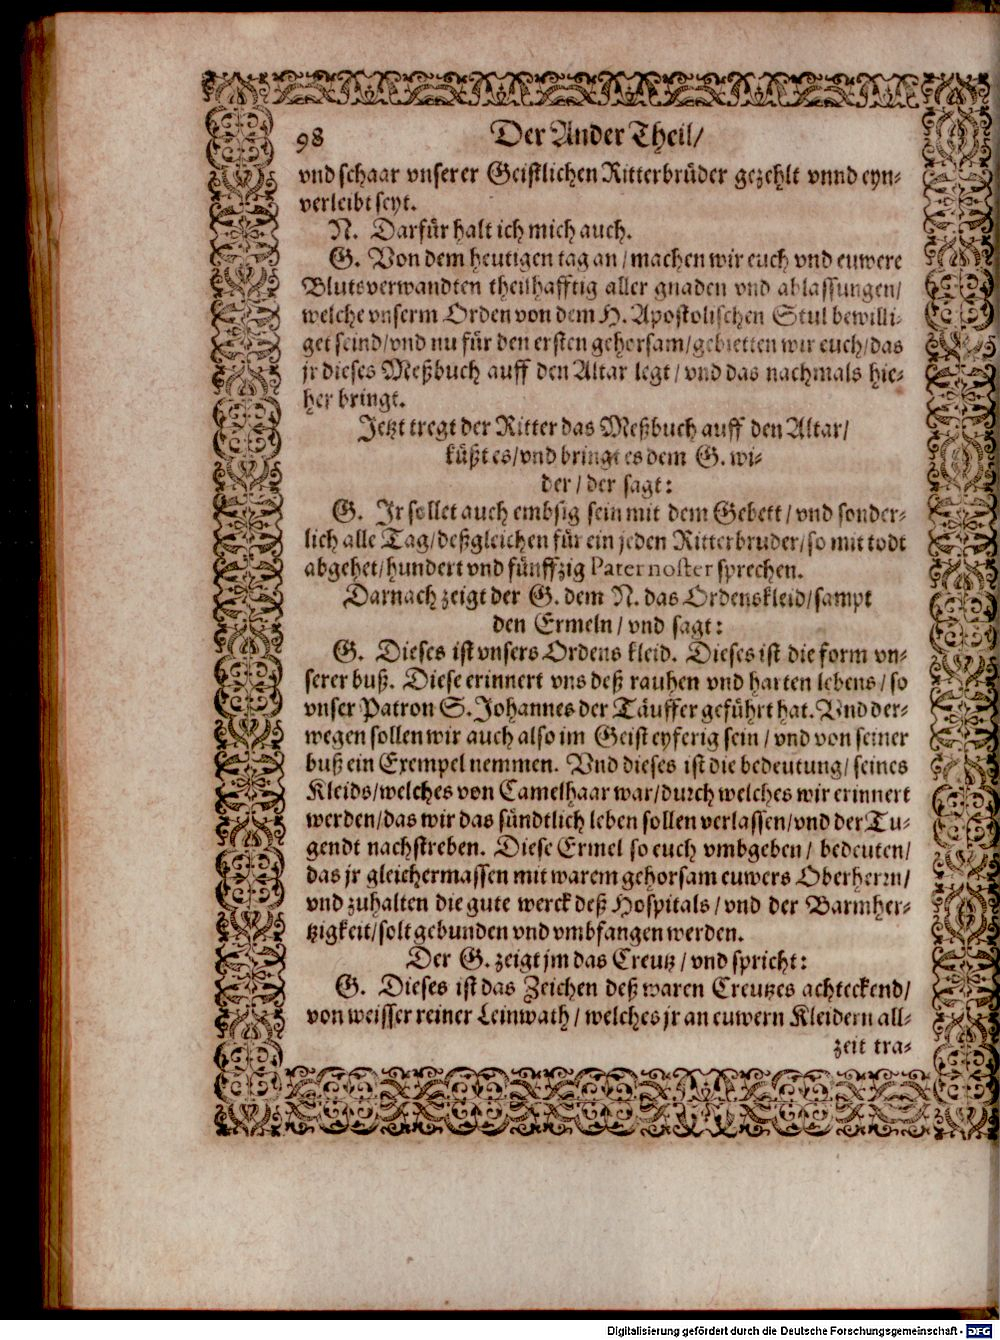 98 Der Ander Theil/
vnd schaar vnserer Geistlichen Ritterbrüder gezehlt vnnd eyn-
verleibt seyt.
N. Darfür halt ich mich auch.
G. Von dem heutigen tag an / machen wir euch vnd euwere
Blutsverwandten theilhafftig aller gnaden vnd ablassungen/
welche vnserm Orden von dem H. Apostolischen Stul bewilli-
get seind/vnd nu für den ersten gehorsam/gebietten wir euch/das
jr dieses Meßbuch auff den Altar legt / vnd das nachmals hie-
her bringt.
Jetzt tregt der Ritter das Meßbuch auff den Altar/
küßt es/vnd bringt es dem G. wi-
der / der sagt:
G. Jr sollet auch embsig sein mit dem Gebett / vnd sonder-
lich alle Tag/deßgleichen für ein jeden Ritterbruder/so mit todt
abgehet/hundert vnd fünffzig Pater noster sprechen.
Darnach zeigt der G. dem N. das Ordenskleid/sampt
den Ermeln / vnd sagt:
G. Dieses ist vnsers Ordens kleid. Dieses ist die form vn-
serer buß. Diese erinnert vns deß rauhen vnd harten lebens / so
vnser Patron S. Johannes der Täuffer geführt hat. Vnd der-
wegen sollen wir auch also im Geist eyferig sein / vnd von seiner
buß ein Exempel nemmen. Vnd dieses ist die bedeutung/ seines
Kleids/welches von Camelhaar war/durch welches wir erinnert
werden/das wir das sündtlich leben sollen verlassen/vnd der Tu-
gendt nachstreben. Diese Ermel so euch vmbgeben / bedeuten/
das jr gleichermassen mit warem gehorsam euwers Oberherrn/
vnd zuhalten die gute werck deß Hospitals / vnd der Barmher-
tzigkeit/solt gebunden vnd vmbfangen werden.
Der G. zeigt jm das Creutz / vnd spricht:
G. Dieses ist das Zeichen deß waren Creutzes achteckend/
von weisser reiner Leinwath / welches jr an euwern Kleidern all-
zeit tra-
Digitalisierung gefördert durch die Deutsche Forschungsgemeinschaft - DFG